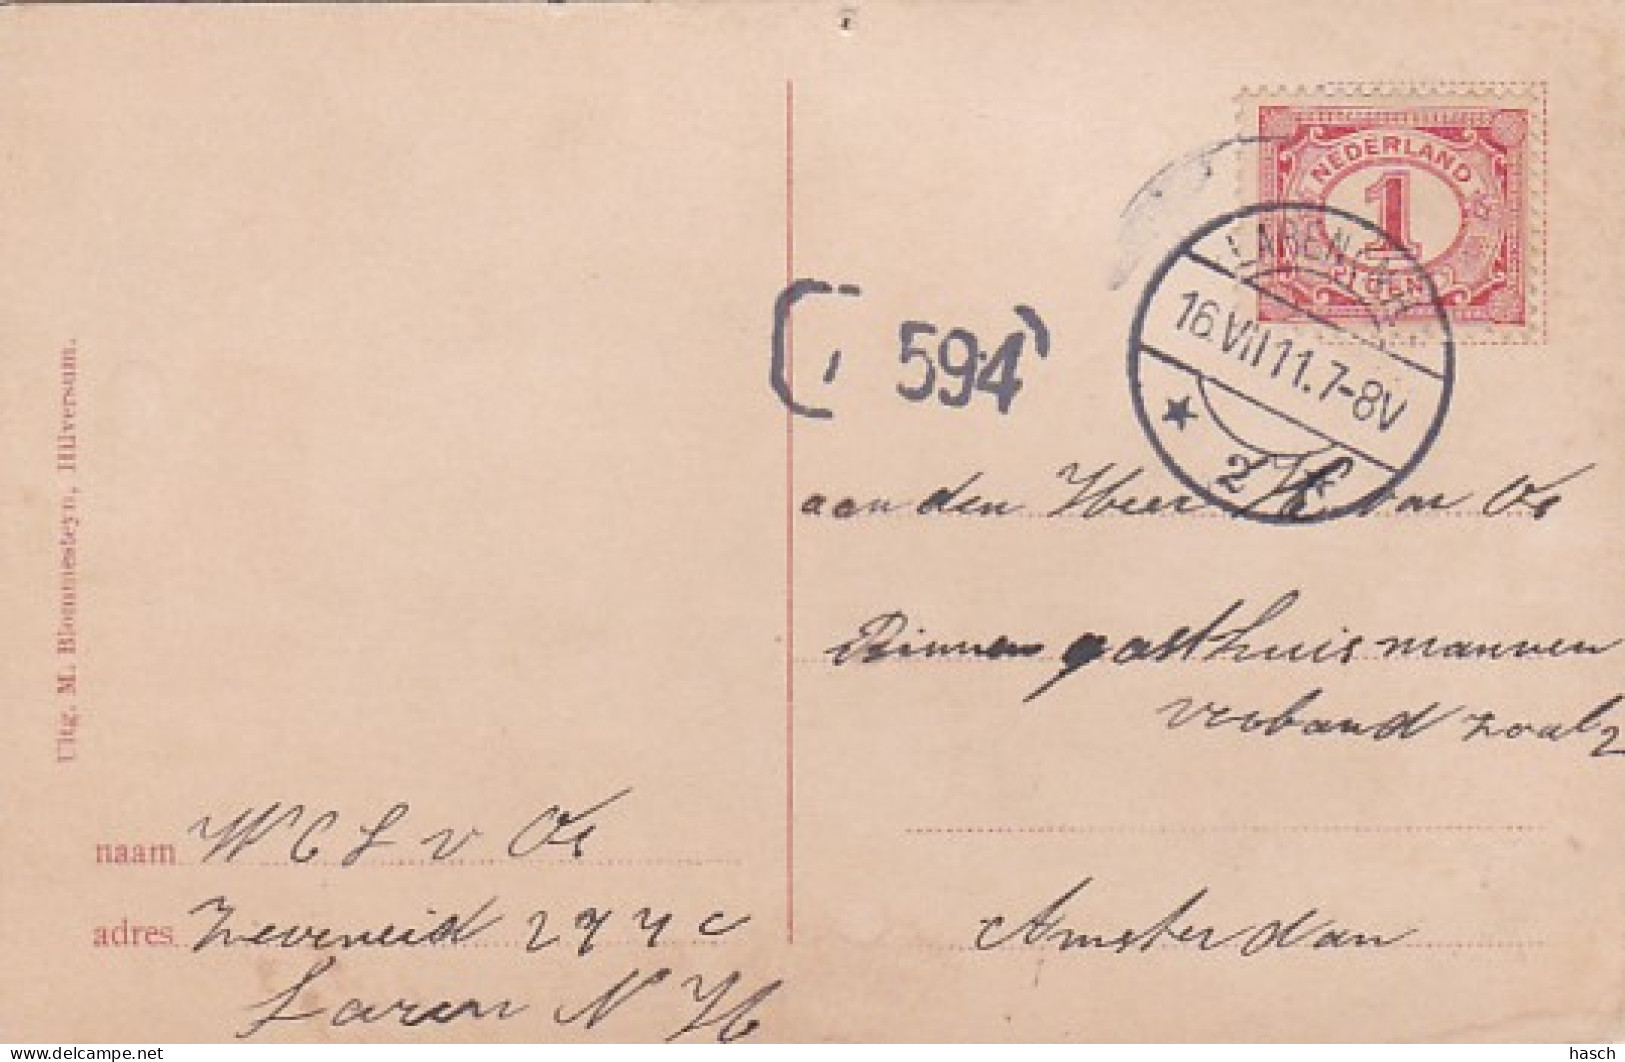 NEDERLAND
1
CENT
LAREN (N.H.)
16.VII 11.7-8V
2
594
aan den Heer H van Os
Binnen gasthuis mannen
verband zaal 2
Amsterdam
Uitg. M. Blommesteyn, Hilversum.
naam W C L v Os
adres 277 c
Laren N H
hasch